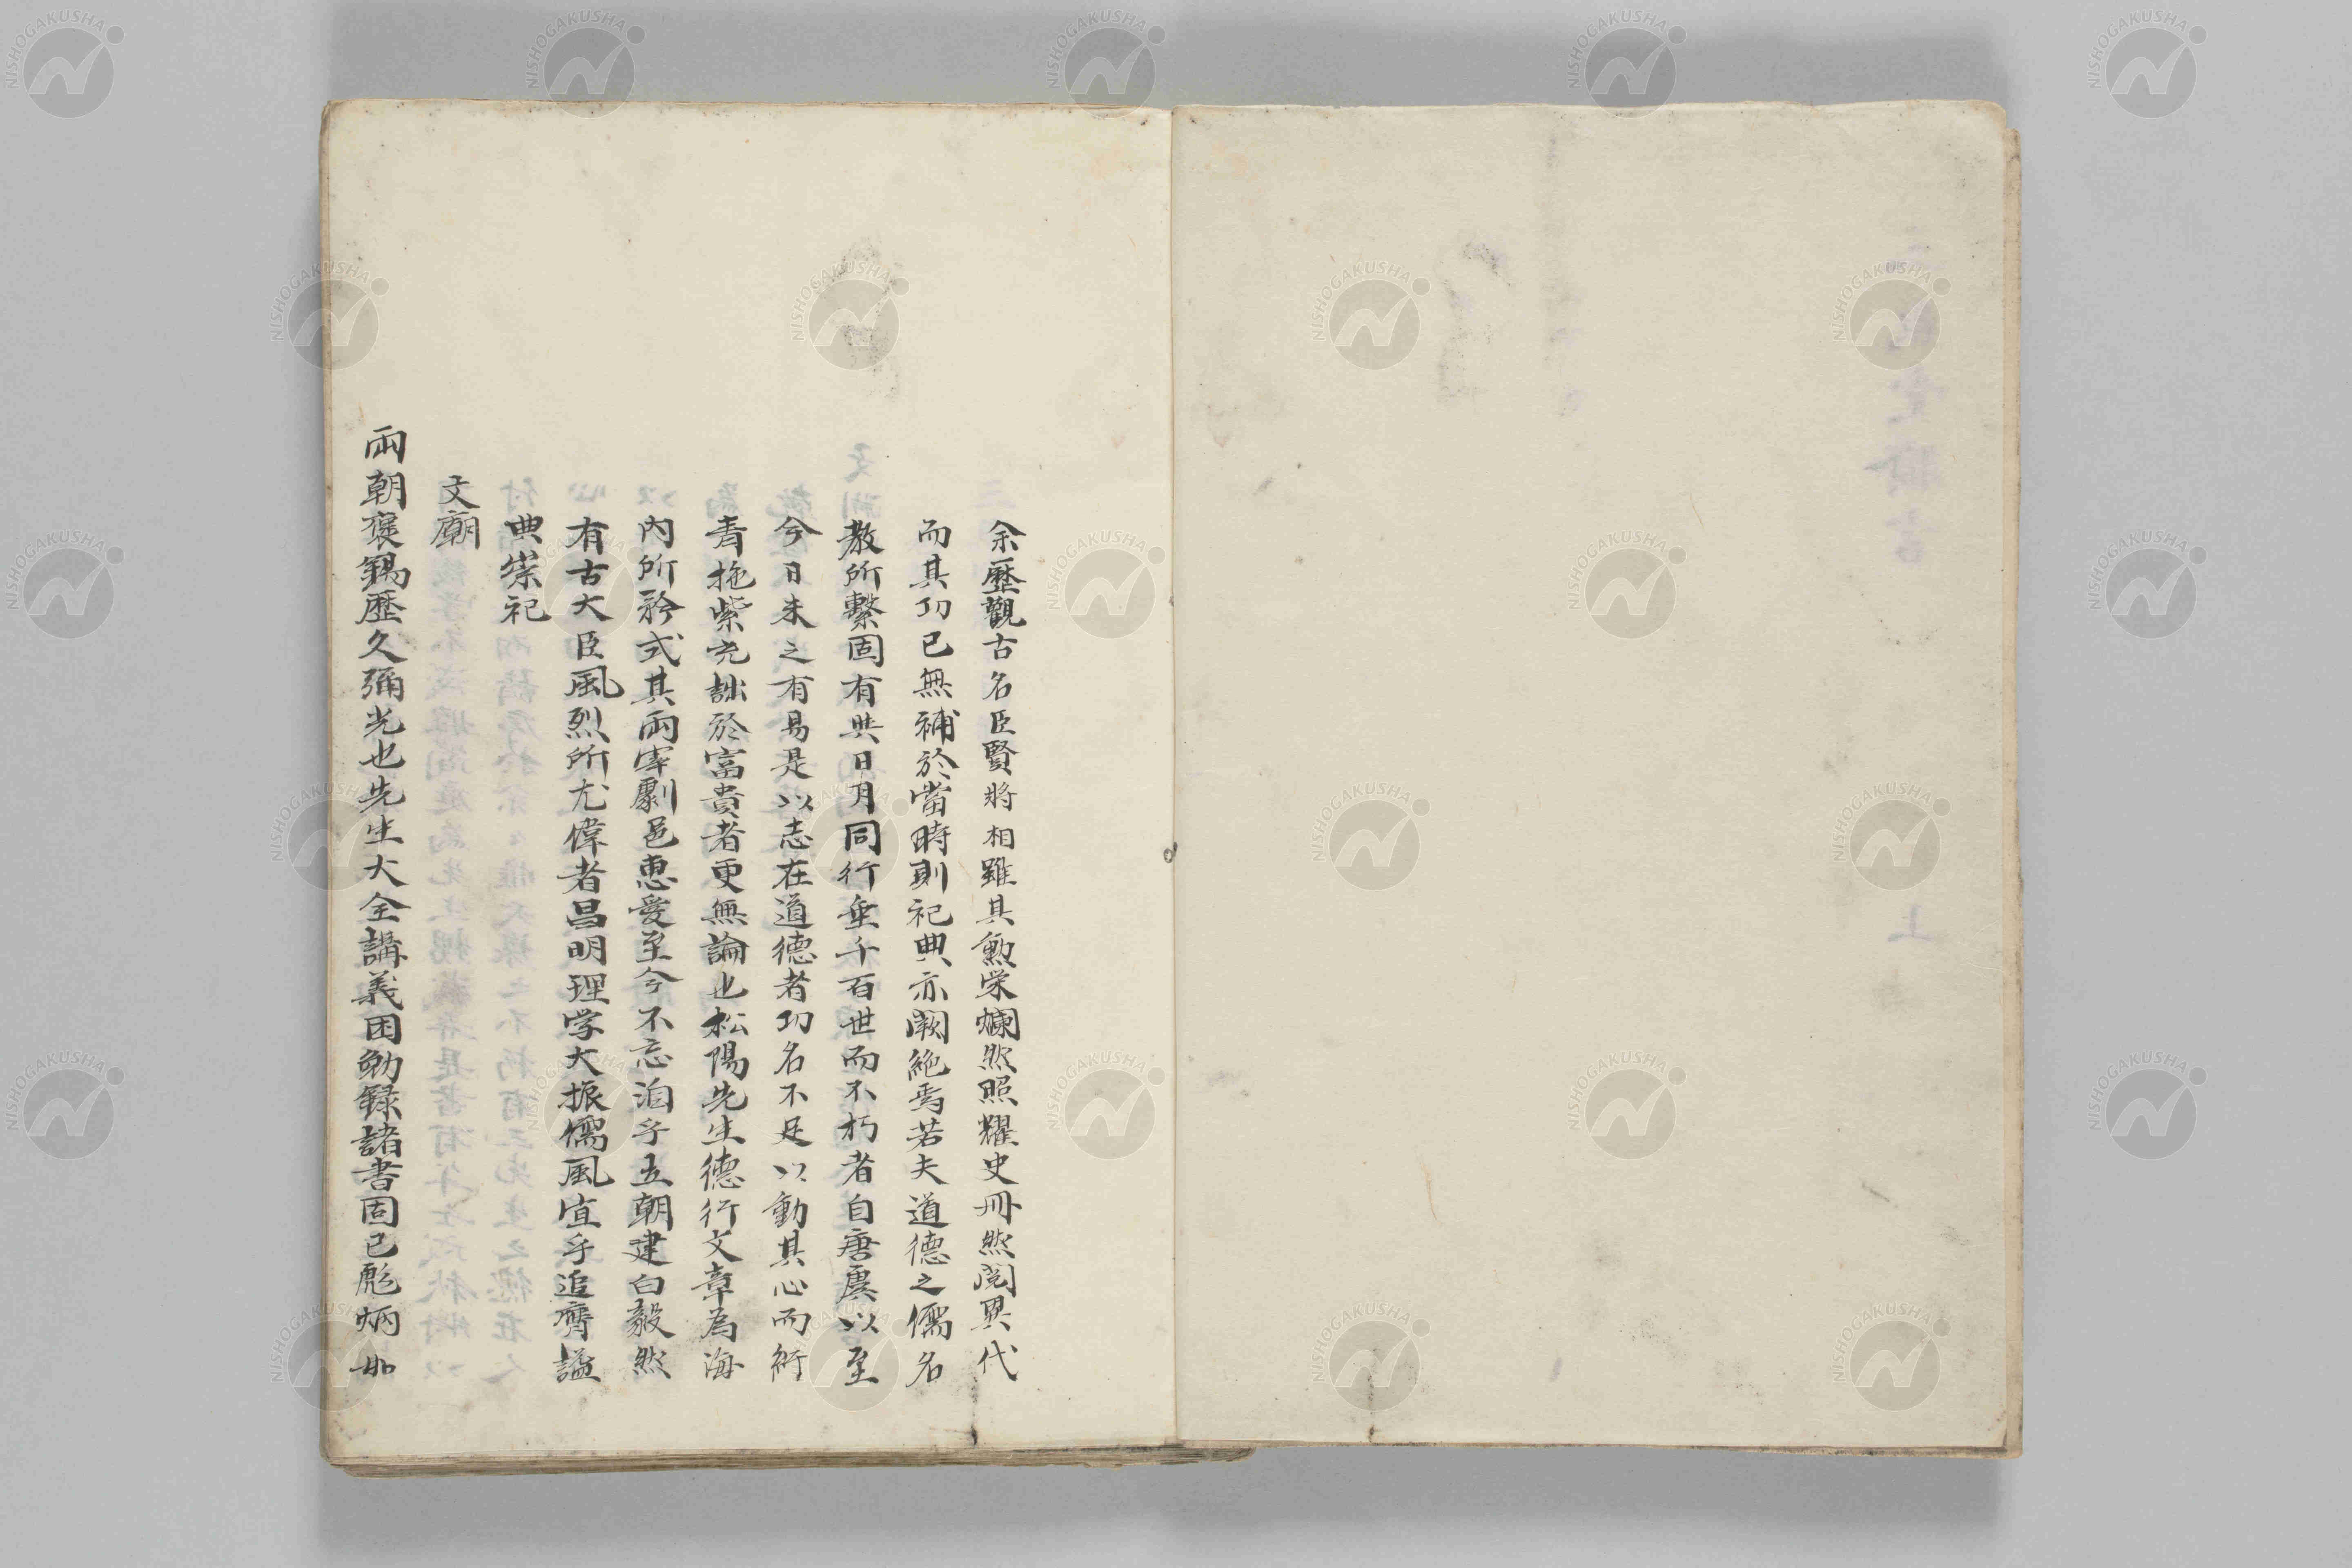 余歷觀古名臣賢將相雖其勲栄爛然照耀史冊然閲異代
而其功已無補於當時則祀典亦闕絶焉若夫道德之儒名
教所繫固有與日月同行垂千百世而不朽者自唐虞以至
今日未之有易是以志在道德者功名不足以動其心而紆
青拖紫充詘於富貴者更無論也松陽先生德行文章為海
内所矜式其兩宰劇邑惠愛至今不忘洎乎立朝建白毅然
有古大臣風烈所尤偉者昌明理学大振儒風宜乎追膺諡
典崇祀
文廟
兩朝褒錫歷久彌光也先生大全講義困勉録諸書固已彪炳如
NISHOGAKUSHA